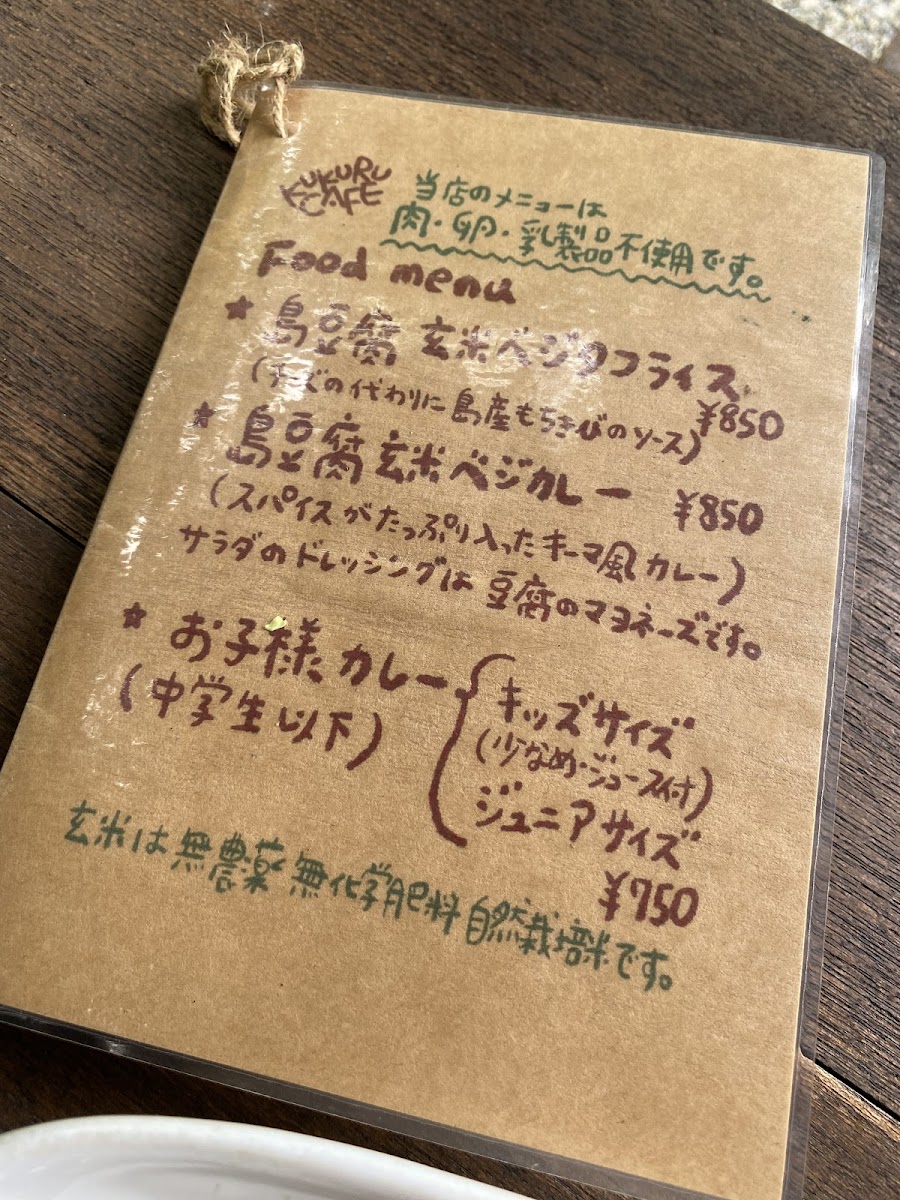 KUKURU
CAFE
当店のメニューは
肉・卵・乳製品不使用です。
Food menu
★ 島豆腐 玄米ベジタコライス
¥850
(チーズの代わりに 島産もちきびのソース)
★ 島豆腐 玄米ベジカレー ¥850
(スパイスがたっぷり入ったキーマ風カレー)
サラダのドレッシングは 豆腐のマヨネーズです。
★ お子様カレー
(中学生以下)
キッズサイズ
(少なめ・ジュース付)
ジュニアサイズ
¥750
玄米は 無農薬 無化学肥料 自然栽培米です。